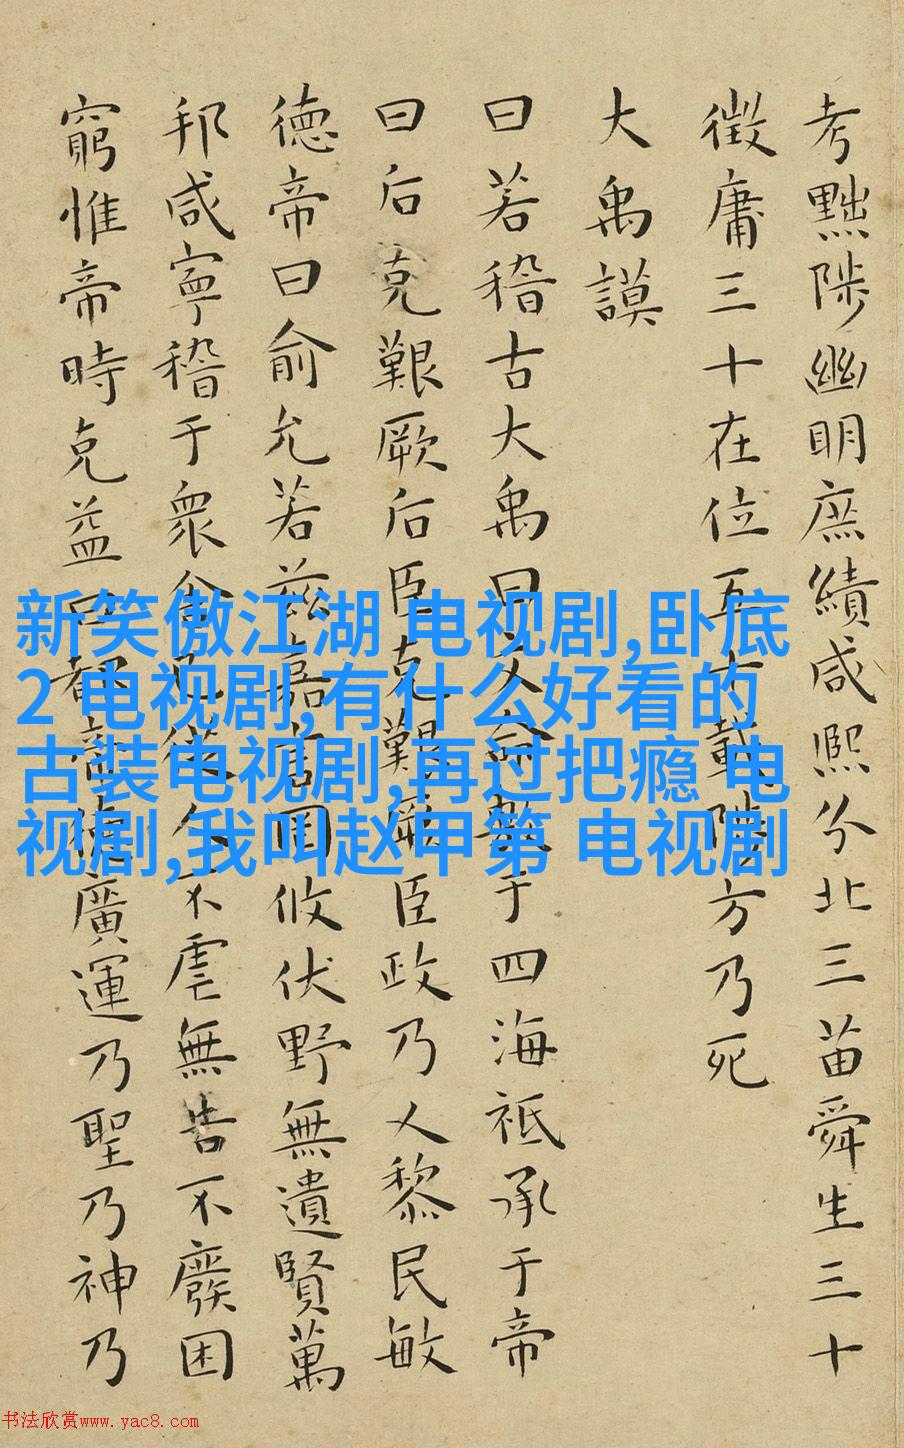 考黜陟幽明庶績咸熙分北三苗舜生三十
徵庸三十在位五十載陟方乃死
大禹謨
曰若稽古大禹曰文命敷于四海祗承于帝
曰后克艱厥后臣克艱厥臣政乃乂黎民敏
德帝曰俞允若茲嘉言罔攸伏野無遺賢萬
邦咸寧稽于衆舍己從人不虐無告不廢困
窮惟帝時克益曰都帝德廣運乃聖乃神乃
新笑傲江湖 电视剧,卧底
2 电视剧,有什么好看的
古装电视剧,再过把瘾 电
视剧,我叫赵甲第 电视剧
书法欣赏www.yac8.com